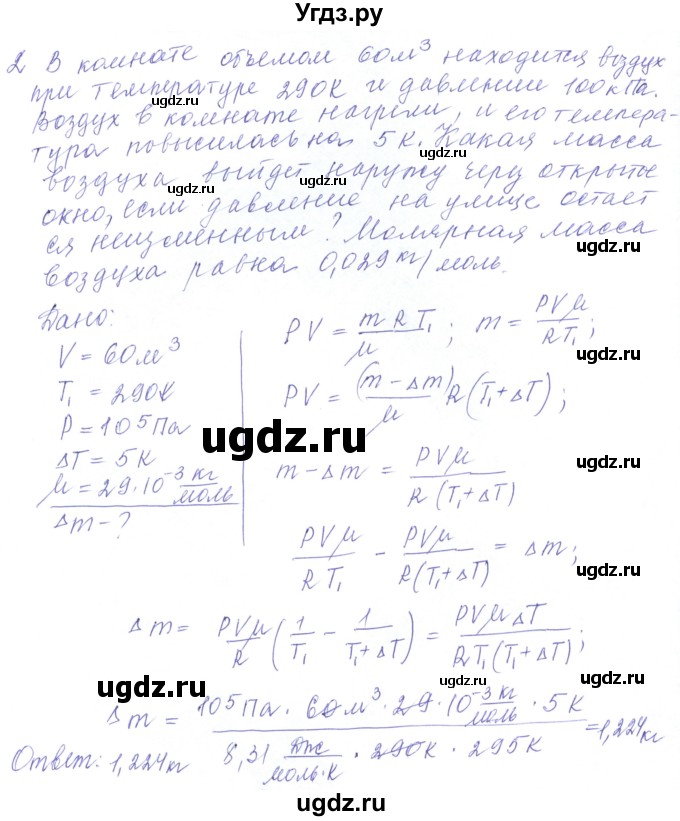 Угдз.ру
2 В комнате объемом 60м³ находится воздух
при температуре 290К и давлении 100кПа.
Воздух в комнате нагрели, и его темпера-
тура повысилась на 5К. Какая масса
воздуха выйдет наружу через открытое
окно, если давление на улице остает
ся неизменным? Молярная масса
воздуха равна 0,029 кг/моль.
Дано:
V = 60м³
T₁ = 290К
P = 10⁵ Па
ΔT = 5К
μ = 29·10⁻³ кг/моль
Δm - ?
PV = m R T₁ / μ ; m = PVμ / RT₁ ;
PV = (m - Δm) / μ R(T₁ + ΔT) ;
m - Δm = PVμ / R(T₁ + ΔT)
PVμ / R T₁ - PVμ / R(T₁ + ΔT) = Δm ;
Δm = PVμ / R (1 / T₁ - 1 / T₁ + ΔT) = PVμΔT / RT₁(T₁ + ΔT) ;
Δm = 10⁵ Па · 60м³ · 29 · 10⁻³ кг/моль · 5К / 8,31 Дж/моль·К · 290К · 295К = 1,224кг
Ответ: 1,224кг
ugdz.ru
ugdz.ru
ugdz.ru
ugdz.ru
ugdz.ru
ugdz.ru
ugdz.ru
ugdz.ru
ugdz.ru
ugdz.ru
ugdz.ru
ugdz.ru
ugdz.ru